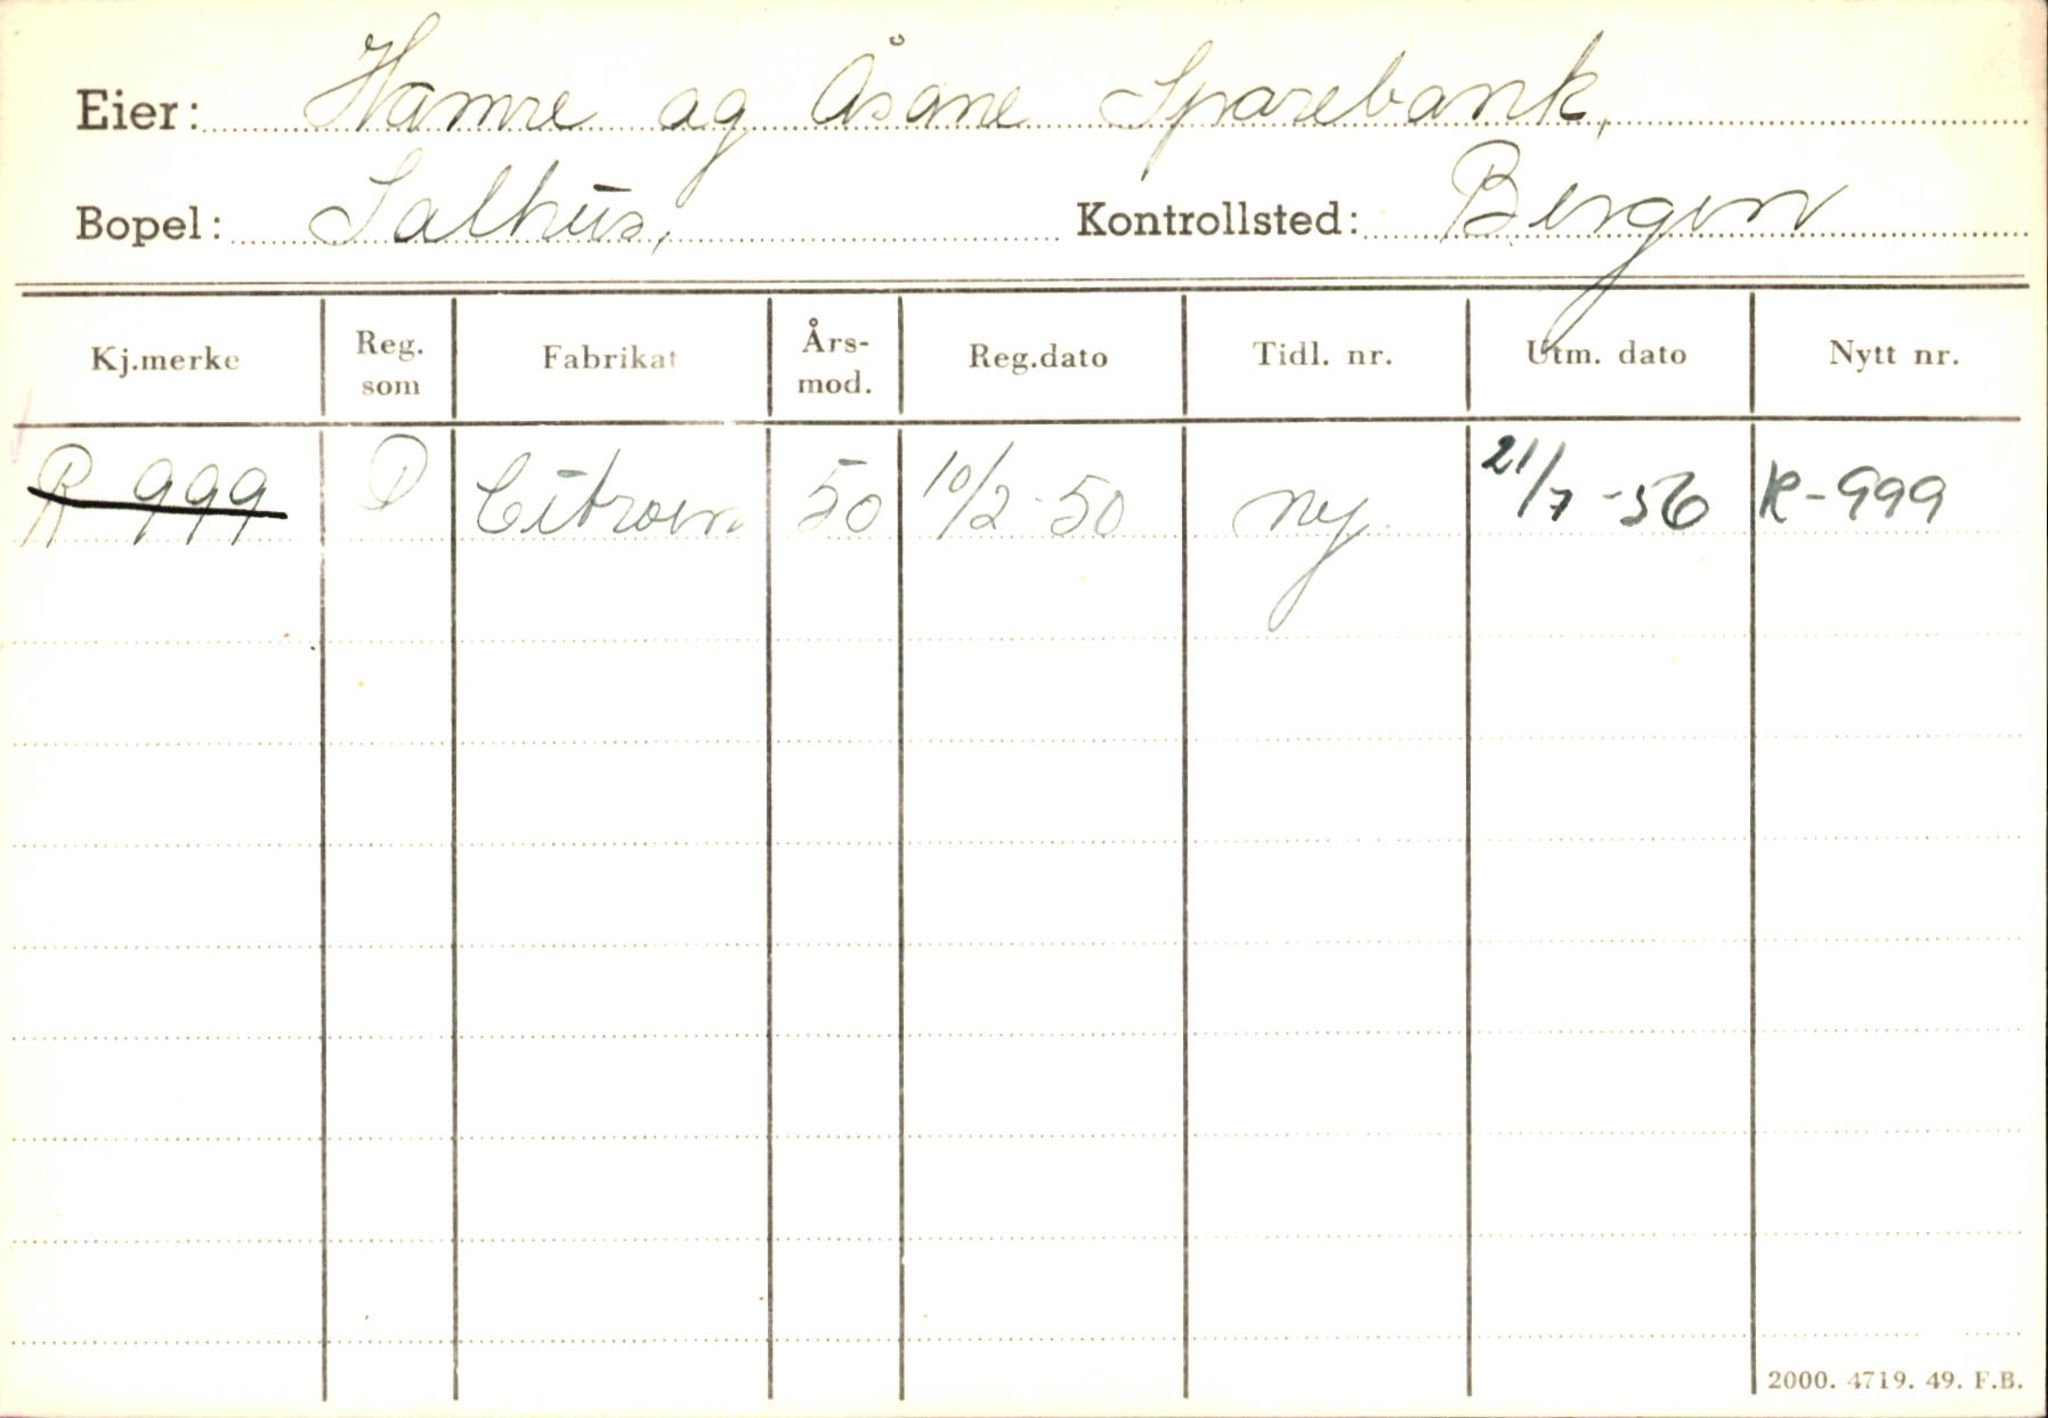 Eier: Hamre og Åsane Sparebank,
Bopel: Salhus, Kontrollsted: Bergen
Kj.merke Reg. som Fabrikat Års- mod. Reg.dato Tidl. nr. Utm. dato Nytt nr.
R 999 P Citroen 50 10/2-50 ny. 21/7-56 R-999
2000. 4719. 49. F.B.